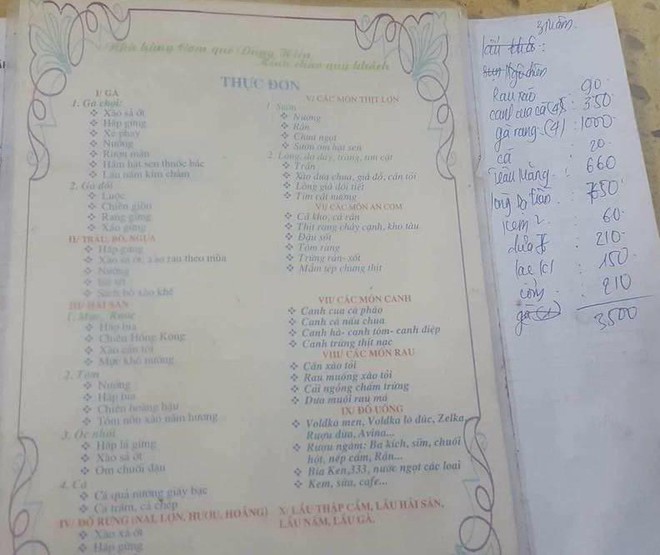 Nhà hàng Cơm quê Dung Kiên
Kính chào quý khách
THỰC ĐƠN
I/ GÀ
1. Gà chọi:
❖ Xáo sả ớt
❖ Hấp gừng
❖ Xé phay
❖ Nướng
❖ Rượu mận
❖ Hầm hạt sen thuốc bắc
❖ Lẩu nấm kim châm
2. Gà đồi
❖ Luộc
❖ Chiên giòn
❖ Rang gừng
❖ Xáo gừng
II/ TRÂU, BÒ, NGỰA
❖ Hấp gừng
❖ Xào sả ớt, xào rau theo mùa
❖ Nướng
❖ Sách bò xào khế
III/ HẢI SẢN
1. Mực, Ruốc
❖ Hấp bia
❖ Chiên Hồng Kông
❖ Xào cần tỏi
❖ Mực khô nướng
2. Tôm
❖ Nướng
❖ Hấp bia
❖ Chiên hoàng hậu
❖ Tôm nõn xào nấm hương
3. Ốc nhồi
❖ Hấp lá gừng
❖ Xào sả ớt
❖ Om chuối đậu
4. Cá
❖ Cá quả nướng giấy bạc
❖ Cá trắm, cá chép
IV/ ĐỒ RỪNG (NAI, LỢN, HƯƠU, HOẴNG)
❖ Xào xả ớt
❖ Hấp gừng
V/ CÁC MÓN THỊT LỢN
1. Sườn
❖ Nướng
❖ Rán
❖ Chua ngọt
❖ Sườn om hạt sen
2. Lòng, dạ dày, tràng, tim cật
❖ Trần
❖ Xào dưa chua, giá đỗ, cần tỏi
❖ Lòng già dồi tiết
❖ Tim cật nướng
VI/ CÁC MÓN ĂN CƠM
❖ Cá kho, cá rán
❖ Thịt rang cháy cạnh, kho tàu
❖ Đậu sốt
❖ Tôm rang
❖ Trứng rán- sốt
❖ Mắm tép chưng thịt
VII/ CÁC MÓN CANH
❖ Canh cua cà pháo
❖ Canh cá nấu chua
❖ Canh hà- canh tôm- canh điệp
❖ Canh trứng thịt nạc
VIII/ CÁC MÓN RAU
❖ Cần xào tỏi
❖ Rau muống xào tỏi
❖ Cải ngồng chấm trứng
❖ Dưa muối rau má
IX/ ĐỒ UỐNG
❖ Voldka men, Voldka lò đúc, Zelka
Rượu dừa, Avina...
❖ Rượu ngâm: Ba kích, sim, chuối
hột, nếp cẩm, Rắn...
❖ Bia Ken,333, nước ngọt các loại
❖ Kem, sữa, cafe...
X/ LẨU THẬP CẨM, LẨU HẢI SẢN,
LẨU NẤM, LẨU GÀ.
3 mâm
Rau xào : 90
canh cua cà : 350
gà rang (4) : 1000
cá 20
trâu măng : 660
lòng dạ trần : 750
kem 2 : 60
dứa : 210
lạc (c) : 150
cơm : 210
gà
3500